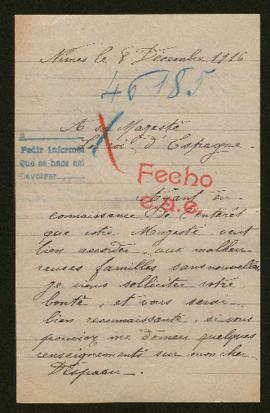 Nîmes le 8 Décembre 1916
46185
A sa Majesté
le roi d'Espagne
Pedir informes
Que se hace así
Devolver
Fecho
c.a.e.
Ayant eu
connaissance de l'intérêt
que votre Majesté veut
bien accorder aux malheu-
reuses familles sans nouvelles
je viens solliciter votre
bonté, et vous serai
bien reconnaissante, si vous
pouviez me donner quelques
renseignements sur mon cher
Disparu.